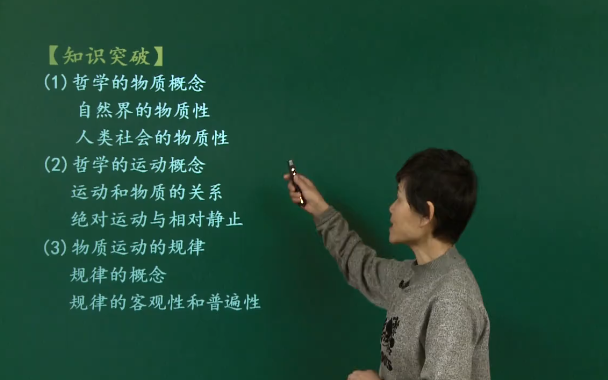 【知识突破】
(1)哲学的物质概念
自然界的物质性
人类社会的物质性
(2)哲学的运动概念
运动和物质的关系
绝对运动与相对静止
(3)物质运动的规律
规律的概念
规律的客观性和普遍性